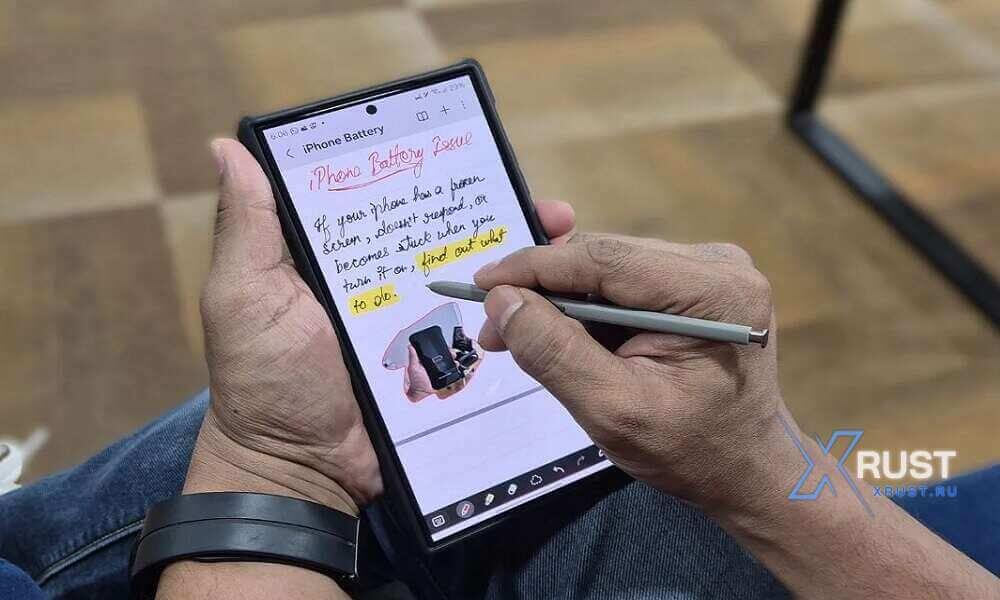 6:06
29%
iPhone Battery
iPhone Battery Issue
If your iphone has a frozen
screen, doesn't respond, or
becomes stuck when you
turn it on, find out what
to do.
XRUST
XRUST.RU